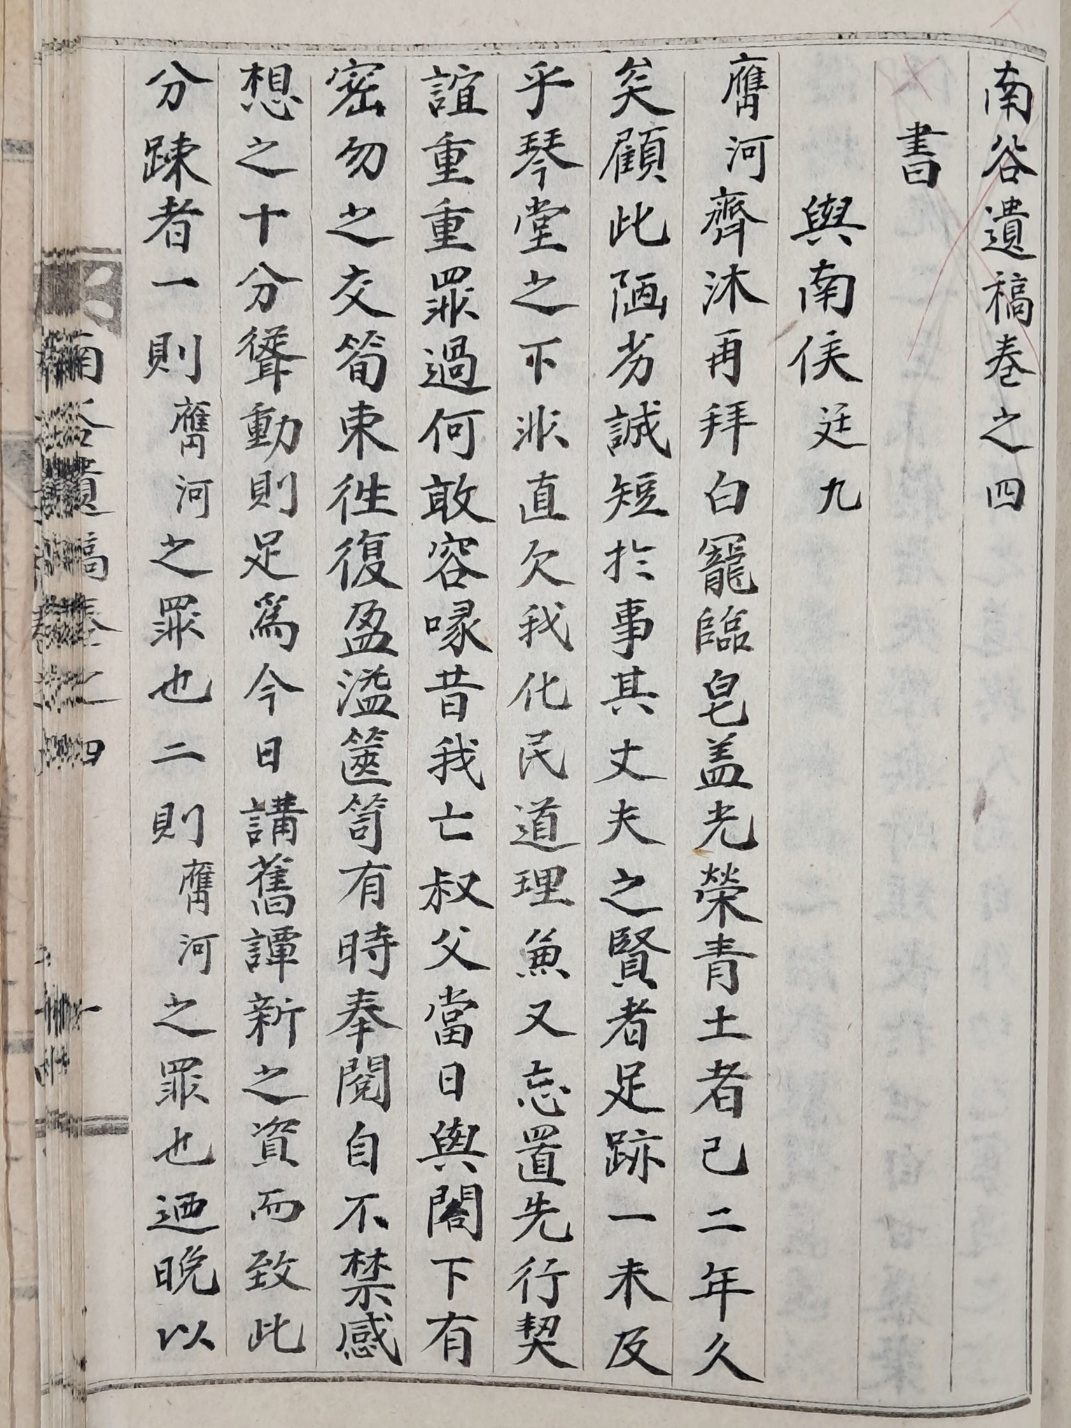 南谷遺稿卷之四
書
與南侯廷九
膺河齊沐再拜白寵臨皂盖光榮青土者已二年久
矣顧此陋劣誠短於事其丈夫之賢者足跡一未及
乎琴堂之下非直欠我化民道理兼又忘置先行契
誼重重罪過何敢容喙昔我亡叔父當日與閤下有
密勿之交筍束徃復盈溢篋笥有時奉閱自不禁感
想之十分聳動則足爲今日講舊譚新之資而致此
分踈者一則膺河之罪也二則膺河之罪也迺晩以
南谷遺稿卷之四
一